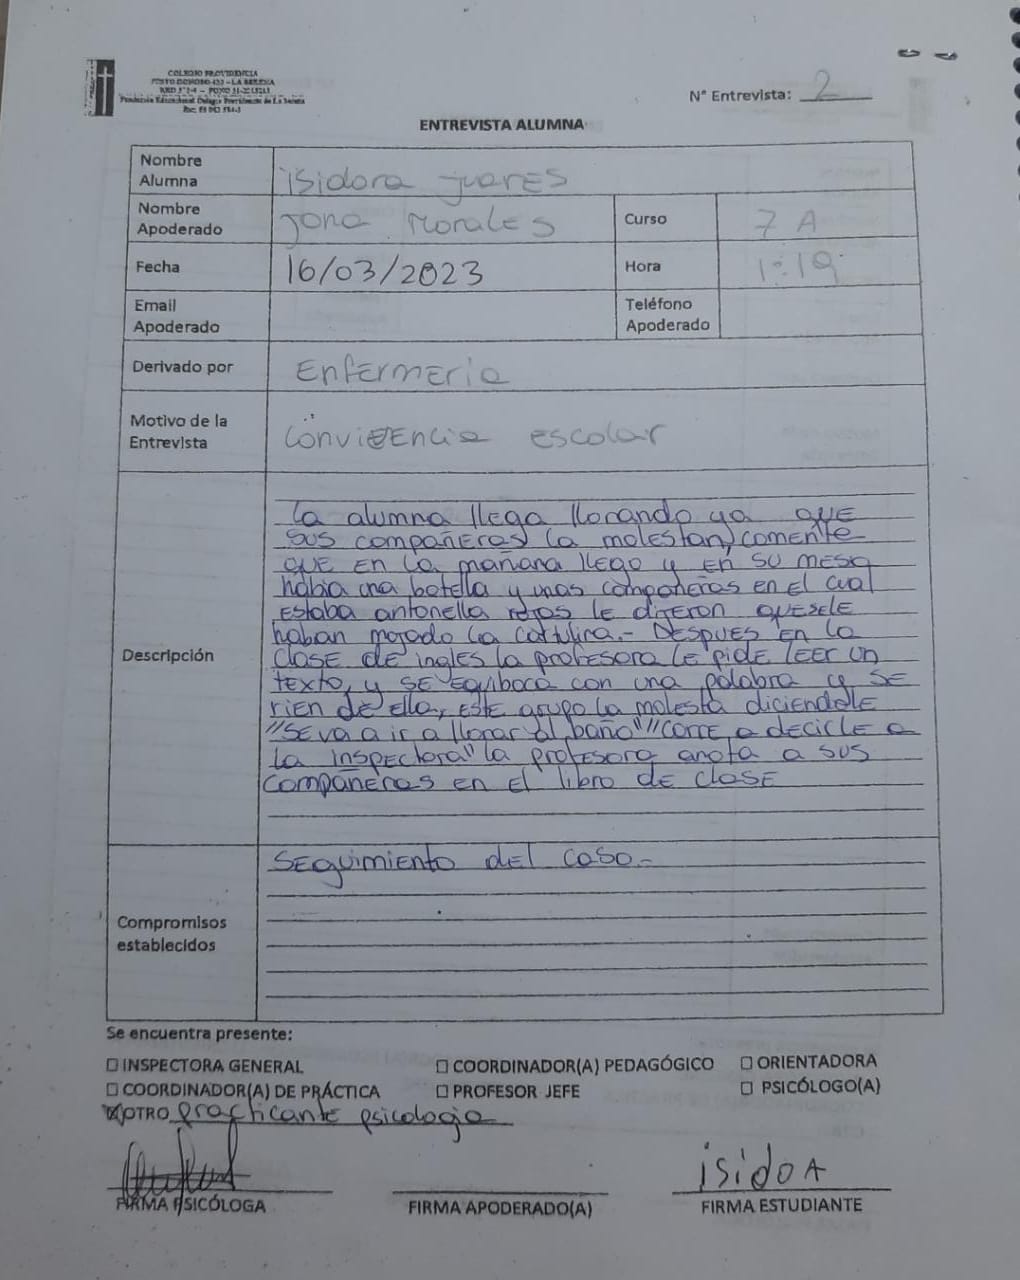 COLEGIO PROVIDENCIA
N° Entrevista: 2
ENTREVISTA ALUMNA
Nombre Alumna isidora juares
Nombre Apoderado Morales Curso 7 A
Fecha 16/03/2023 Hora 1:19
Email Apoderado Teléfono Apoderado
Derivado por Enfermeria
Motivo de la Entrevista Convivencia escolar
Descripción
La alumna llega llorando ya que
sus compañeras la molestan, comente
que en la mañana llego y en su mesa
habia una botella y unas compañeras en el cual
estaba antonella rojas le dijeron quesele
haban mojado la cartulina.- Despues en la
clase de ingles la profesora le pide leer un
texto, y se equiboca con una palabra y se
rien de ella, este grupo la molesta diciendole
"Se va a ir a llorar al baño" "corre a decicle a
la inspectora" la profesora anota a sus
compañeras en el libro de clase
Compromisos establecidos
Seguimiento del caso.-
Se encuentra presente:
☐ INSPECTORA GENERAL ☐ COORDINADOR(A) PEDAGÓGICO ☐ ORIENTADORA
☐ COORDINADOR(A) DE PRÁCTICA ☐ PROFESOR JEFE ☐ PSICÓLOGO(A)
☒ OTRO practicante psicologia
isidoA
FIRMA PSICÓLOGA FIRMA APODERADO(A) FIRMA ESTUDIANTE